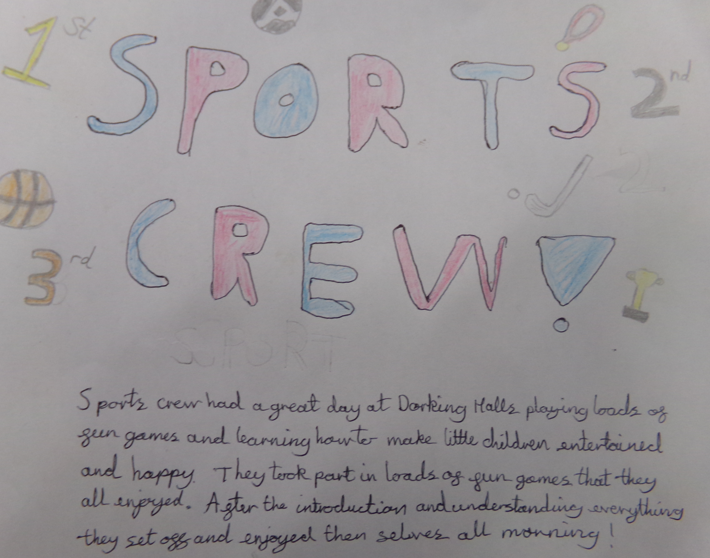 1st
SPORTS
2nd
CREW!
3rd
1
SPORTS
Sports crew had a great day at Dorking Halls playing loads of
fun games and learning how to make little children entertained
and happy. They took part in loads of fun games that they
all enjoyed. After the introduction and understanding everything
they set off and enjoyed then selves all morning!